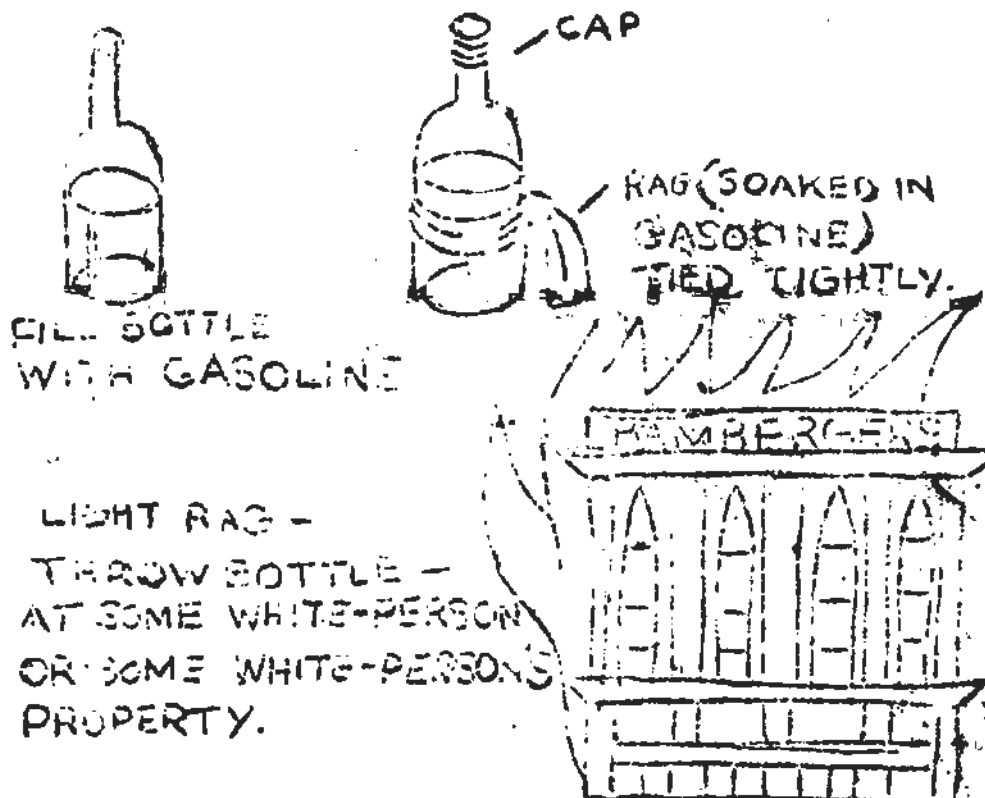 CAP
RAG (SOAKED IN
GASOLINE)
TIED TIGHTLY.
FILL BOTTLE
WITH GASOLINE
BAMBERGERS
LIGHT RAG –
THROW BOTTLE –
AT SOME WHITE-PERSON
OR SOME WHITE-PERSONS
PROPERTY.